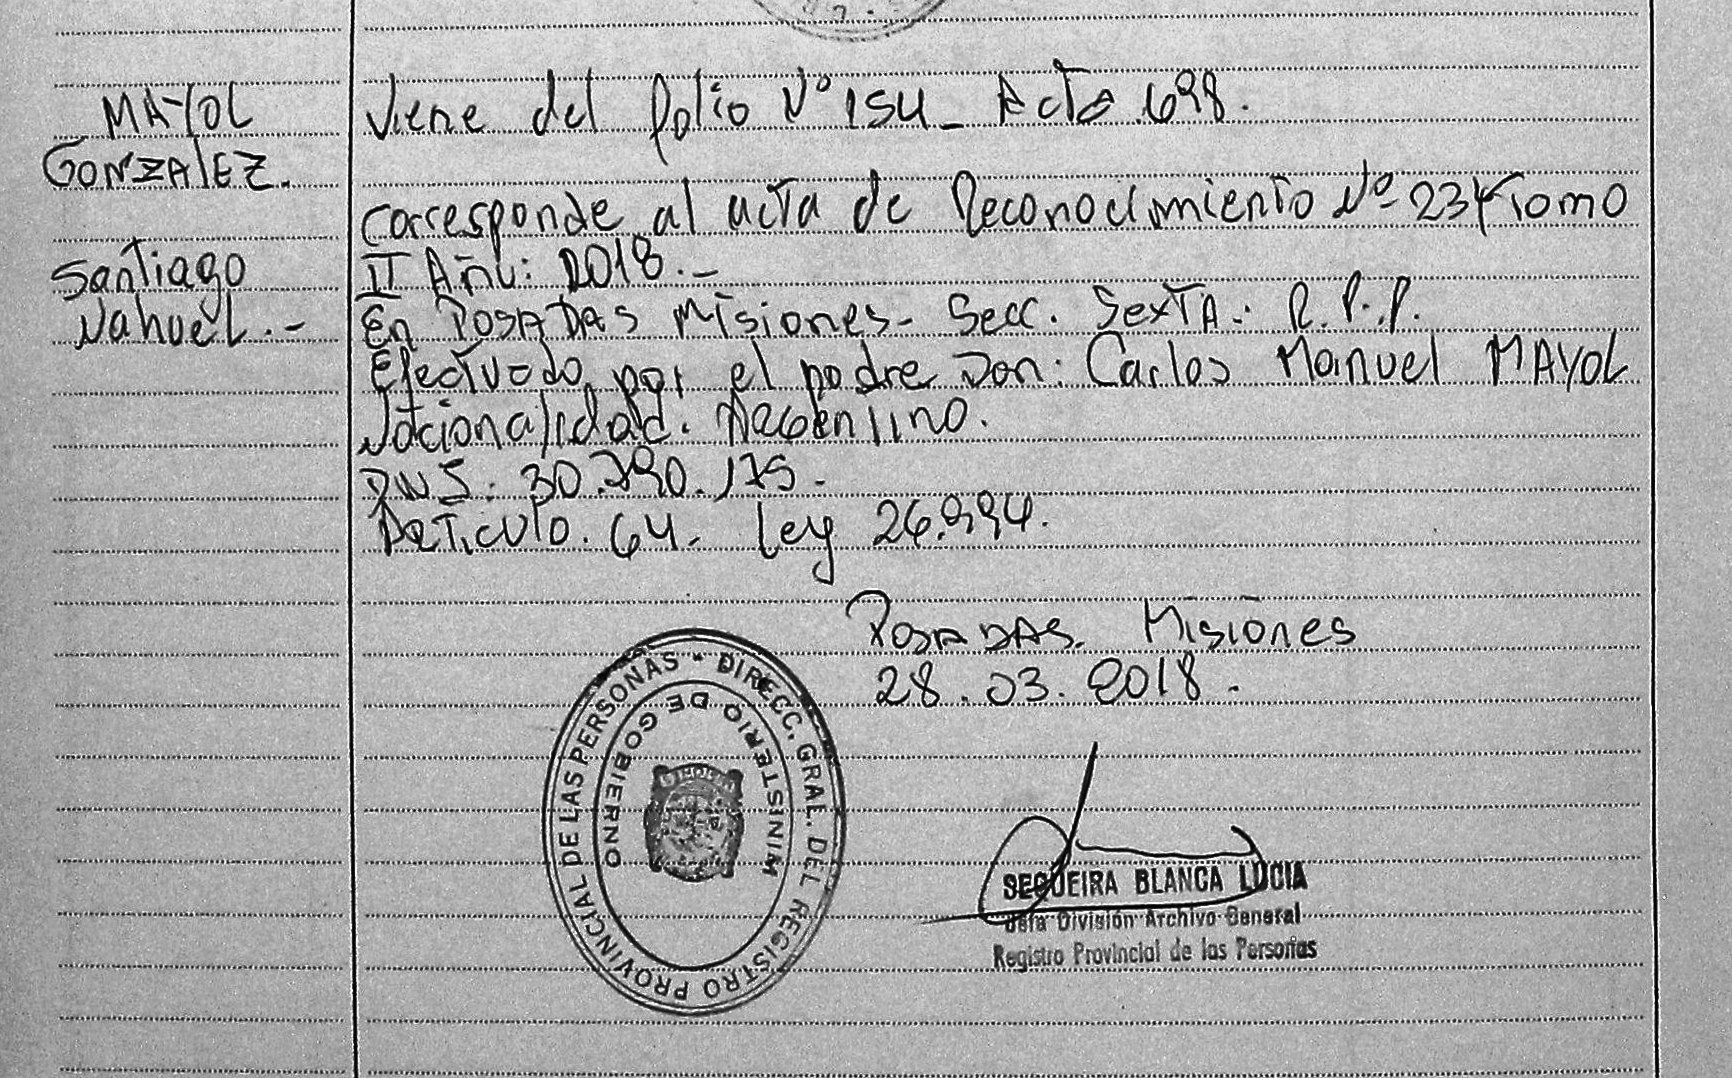 MAYOL
GONZALEZ.
Santiago
Nahuel.-
Viene del folio Nº 154_ Acta 698.
Corresponde al acta de Reconocimiento Nº 234 Tomo
II Año: 2018._
En POSADAS Misiones- Secc. Sexta.: R.P.P.
Efectuado por el padre Don: Carlos Manuel MAYOL
Nacionalidad: Argentino.
DNI: 30.790.175.
Articulo. 64. Ley 26.994.
POSADAS. Misiones
28.03.2018.
DIRECC. GRAL. DEL REGISTRO PROVINCIAL DE LAS PERSONAS
MINISTERIO DE GOBIERNO
SEQUEIRA BLANCA LUCIA
Jefa División Archivo General
Registro Provincial de las Personas